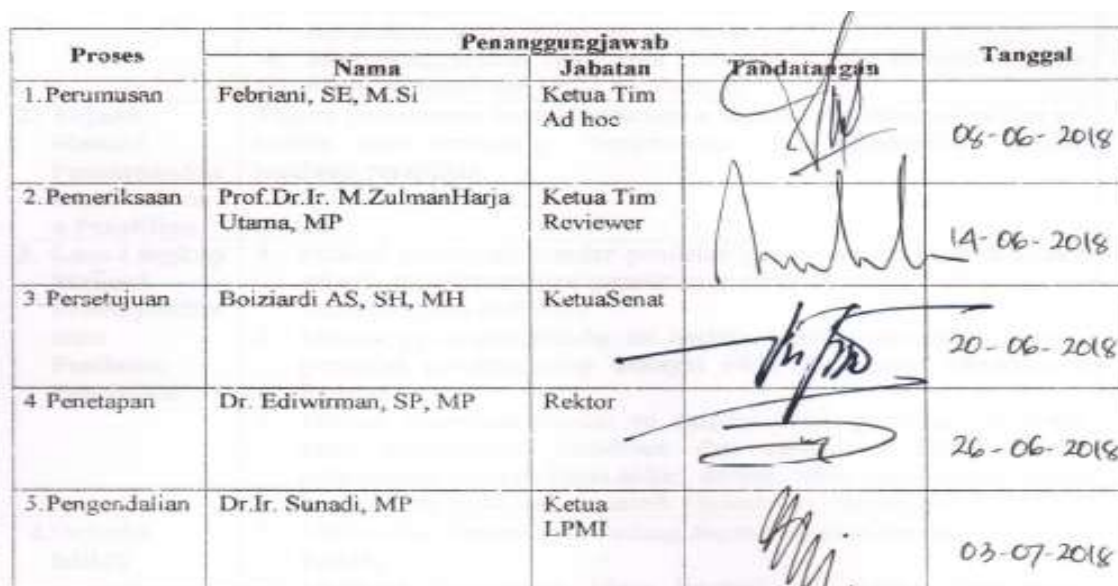 Proses Penanggungjawab Tanggal
Nama Jabatan Tandatangan
1. Perumusan Febriani, SE, M.Si Ketua Tim
Ad hoc
08-06-2018
2. Pemeriksaan Prof.Dr.Ir. M.ZulmanHarja Ketua Tim
Utama, MP Reviewer
14-06-2018
3. Persetujuan Boiziardi AS, SH, MH KetuaSenat
20-06-2018
4 Penetapan Dr. Ediwirman, SP, MP Rektor
26-06-2018
5. Pengendalian Dr.Ir. Sunadi, MP Ketua
LPMI
03-07-2018